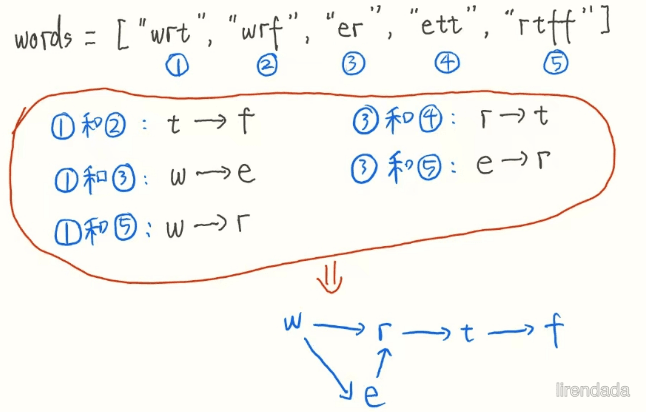 words = ["wrt", "wrf", "er", "ett", "rtff"]
① ② ③ ④ ⑤
①和②: t → f ③和④: r → t
①和③: w → e ③和⑤: e → r
①和⑤: w → r
⇓
w → r → t → f
e
lirendada